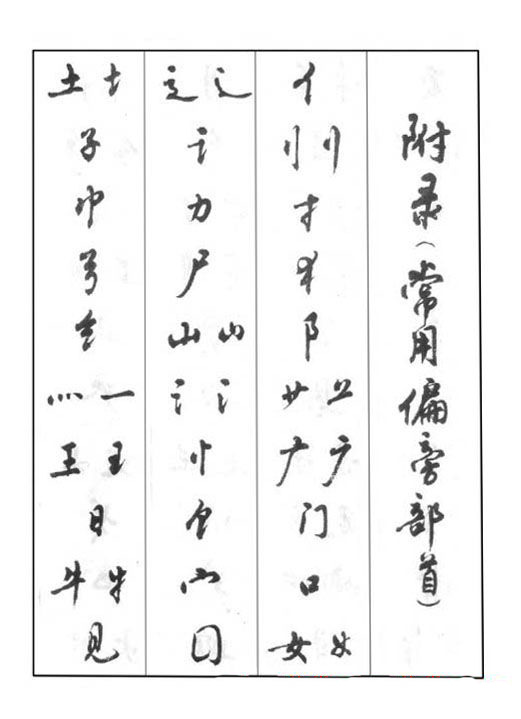 附录(常用偏旁部首)
亻
刂刂
扌
犭
阝
艹䒑
广广
门
口
女女
辶辶
讠
力
尸
山山
氵氵
忄
饣
宀
囗
土土
子
巾
弓
纟
灬一
王王
日
牛牜
见